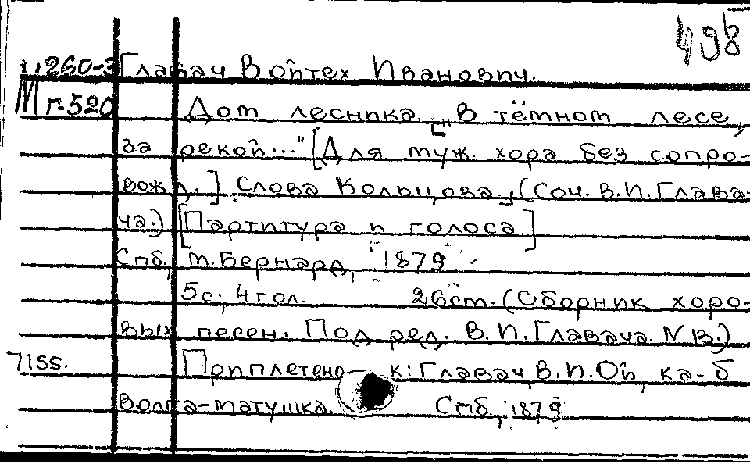 498
Ц260-3 Главач Войтех Иванович.
М г.520 Дом лесника. „В тёмном лесе,
за рекой..." [Для муж. хора без сопро-
вожд.] Слова Кольцова, (Соч. В.И. Глава-
ча.) [Партитура и голоса]
Спб, М. Бернард, 1879.
5с; 4 гол. 26cm. (Сборник хоро-
вых песен. Под ред. В. И. Главача. №13.)
7155. Приплетено к: Главач, В. И. Ой, ка-б
Волга-матушка. Спб, 1879